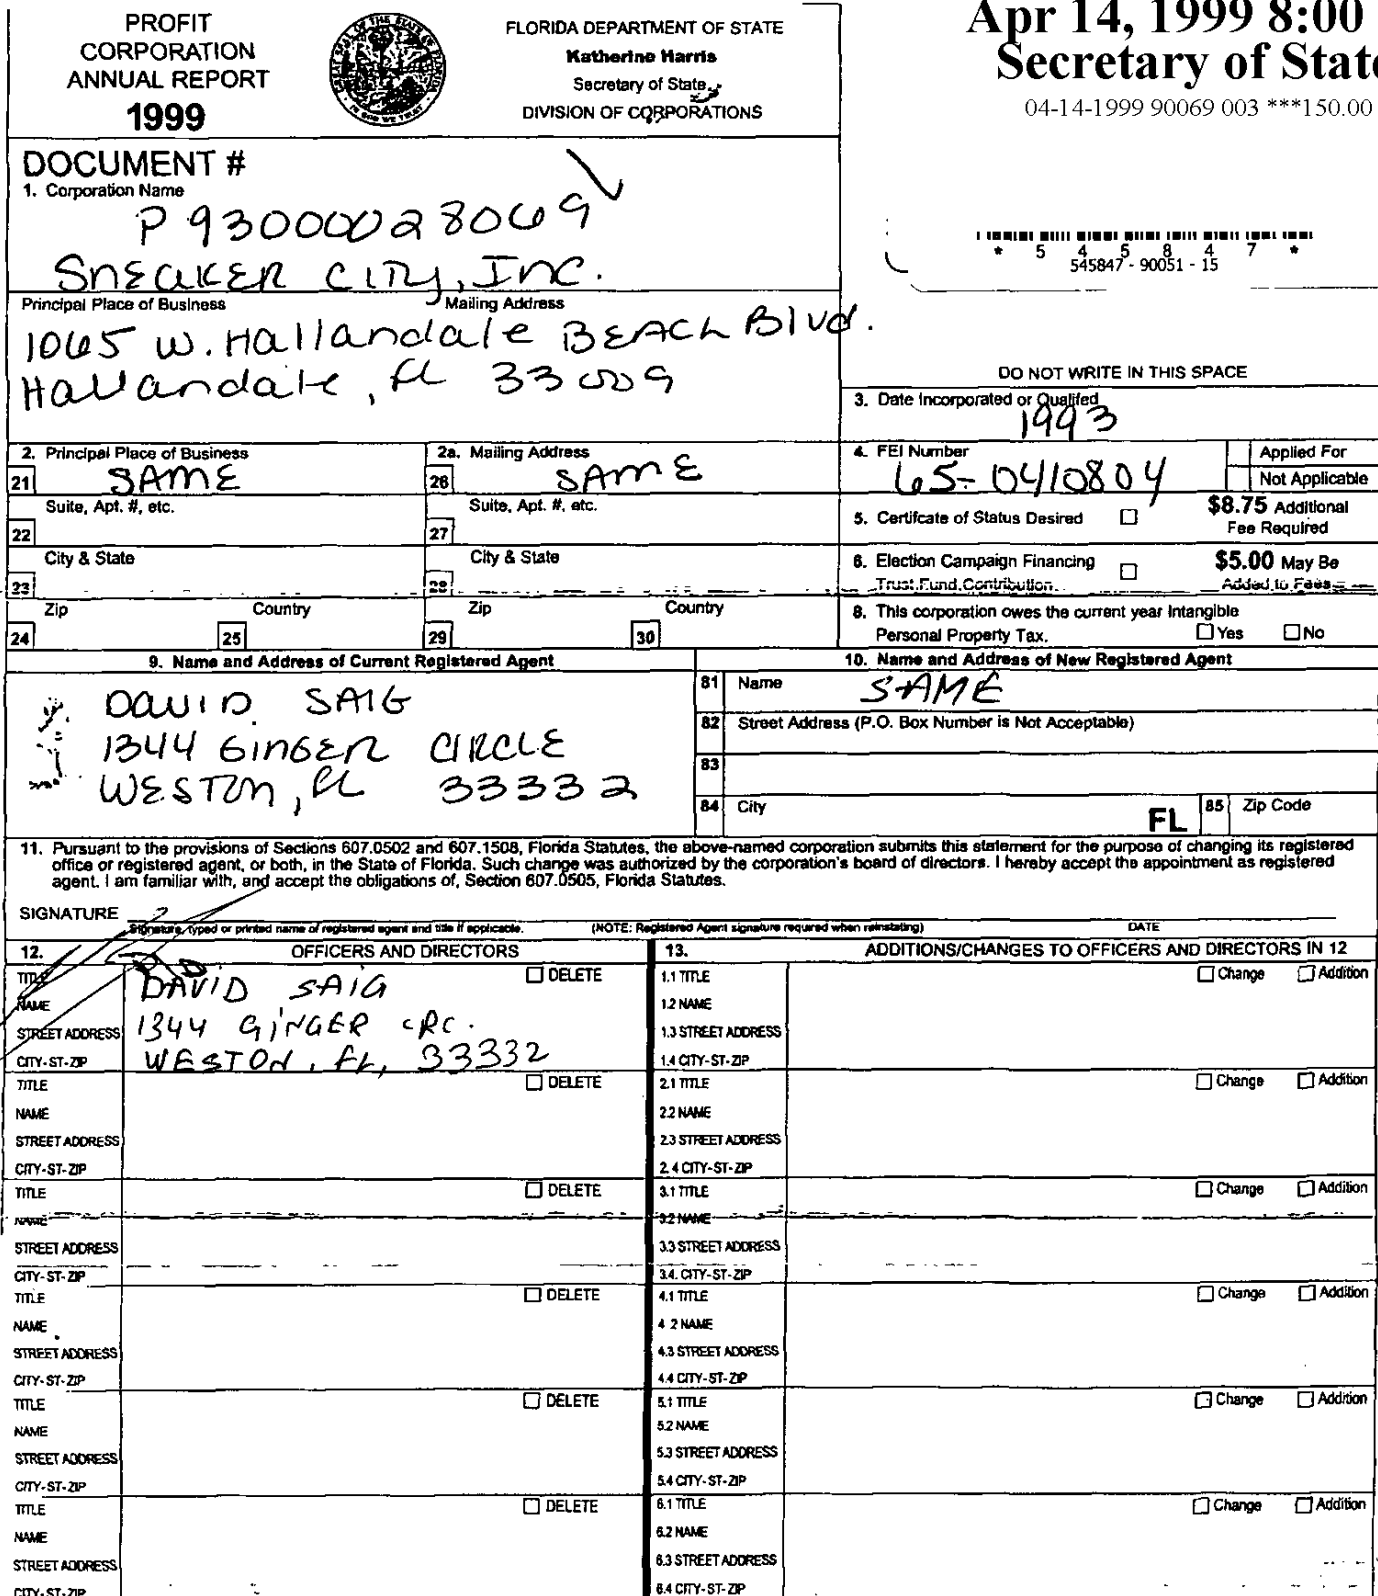 PROFIT
CORPORATION
ANNUAL REPORT
1999
FLORIDA DEPARTMENT OF STATE
Katherine Harris
Secretary of State
DIVISION OF CORPORATIONS
Apr 14, 1999 8:00
Secretary of State
04-14-1999 90069 003 ***150.00
DOCUMENT #
1. Corporation Name
P93000028069
SNEAKER CITY, INC.
* 5 4 5 8 4 7 *
545847 - 90051 - 15
Principal Place of Business Mailing Address
1065 W. Hallandale BEACH Blvd.
Hallandale, FL 33009
DO NOT WRITE IN THIS SPACE
3. Date Incorporated or Qualifed
1993
2. Principal Place of Business
21 SAME
2a. Mailing Address
26 SAME
4. FEI Number
65-0410804
Applied For
Not Applicable
Suite, Apt. #, etc.
22
Suite, Apt. #, etc.
27
5. Certifcate of Status Desired
$8.75 Additional
Fee Required
City & State
23
City & State
28
6. Election Campaign Financing
Trust Fund Contribution
$5.00 May Be
Added to Fees
Zip Country
24 25
Zip Country
29 30
8. This corporation owes the current year Intangible
Personal Property Tax. Yes No
9. Name and Address of Current Registered Agent
DAVID SAIG
1344 GINGER CIRCLE
WESTON, FL 33332
10. Name and Address of New Registered Agent
81 Name SAME
82 Street Address (P.O. Box Number is Not Acceptable)
83
84 City FL 85 Zip Code
11. Pursuant to the provisions of Sections 607.0502 and 607.1508, Florida Statutes, the above-named corporation submits this statement for the purpose of changing its registered
office or registered agent, or both, in the State of Florida. Such change was authorized by the corporation's board of directors. I hereby accept the appointment as registered
agent. I am familiar with, and accept the obligations of, Section 607.0505, Florida Statutes.
SIGNATURE
Signature, typed or printed name of registered agent and title if applicable. (NOTE: Registered Agent signature required when reinstating) DATE
12. OFFICERS AND DIRECTORS
13. ADDITIONS/CHANGES TO OFFICERS AND DIRECTORS IN 12
TITLE DELETE
NAME DAVID SAIG
STREET ADDRESS 1344 GINGER CRC.
CITY-ST-ZIP WESTON, FL, 33332
1.1 TITLE Change Addition
1.2 NAME
1.3 STREET ADDRESS
1.4 CITY-ST-ZIP
TITLE DELETE
NAME
STREET ADDRESS
CITY-ST-ZIP
2.1 TITLE Change Addition
2.2 NAME
2.3 STREET ADDRESS
2.4 CITY-ST-ZIP
TITLE DELETE
NAME
STREET ADDRESS
CITY-ST-ZIP
3.1 TITLE Change Addition
3.2 NAME
3.3 STREET ADDRESS
3.4. CITY-ST-ZIP
TITLE DELETE
NAME
STREET ADDRESS
CITY-ST-ZIP
4.1 TITLE Change Addition
4.2 NAME
4.3 STREET ADDRESS
4.4 CITY-ST-ZIP
TITLE DELETE
NAME
STREET ADDRESS
CITY-ST-ZIP
5.1 TITLE Change Addition
5.2 NAME
5.3 STREET ADDRESS
5.4 CITY-ST-ZIP
TITLE DELETE
NAME
STREET ADDRESS
CITY-ST-ZIP
6.1 TITLE Change Addition
6.2 NAME
6.3 STREET ADDRESS
6.4 CITY-ST-ZIP